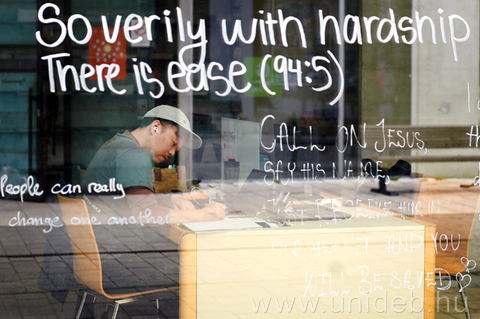 So verily with hardship
There is ease (94:5)
CALL ON JESUS,
SAY HIS NAME,
IN
AND YOU
WILL BE SAVED
People can really
change one another
www.unideb.hu